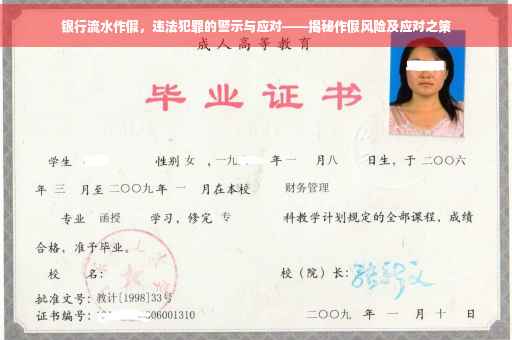 银行流水作假，违法犯罪的警示与应对——揭秘作假风险及应对之策
成人高等教育
毕业证书
学生 性别 女 ，一九 年一 月八 日生，于二〇〇六
年 三 月至二〇〇九年 一 月在本校 财务管理
专业 函授 学习，修完 专 科教学计划规定的全部课程，成绩
合格，准予毕业。
校 名： 校（院）长：
批准文号：教计[1998]33号
证书编号： 06001310 二〇〇九 年 一 月 十 日